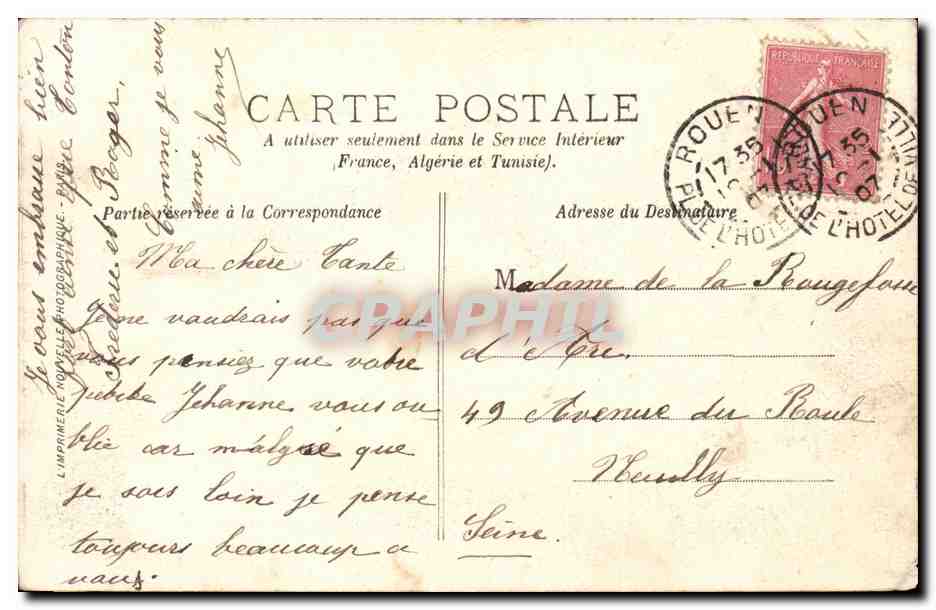 CARTE POSTALE
A utiliser seulement dans le Service Intérieur
(France, Algérie et Tunisie).
Partie réservée à la Correspondance
Adresse du Destinataire
REPUBLIQUE FRANÇAISE
ROUEN
17 35
07
PL. DE L'HOTEL DE VILLE
ROUEN
17 35
07
PL. DE L'HOTEL DE VILLE
Ma chère Tante
Je ne vaudrais pas que
vous pensiez que votre
petite Jehanne vous ou
blie car malgré que
je sois loin je pense
toujours beaucoup a
vous.
Je vous embrasse bien
ainsi que Tonton
Frederic et Roger.
Comme je vous
aime
Jehanne
Madame de la Rougefosse
d'Are.
49 Avenue du Roule
Neuilly
Seine.
L'IMPRIMERIE NOUVELLE PHOTOGRAPHIQUE. - PARIS
CPAPHIL